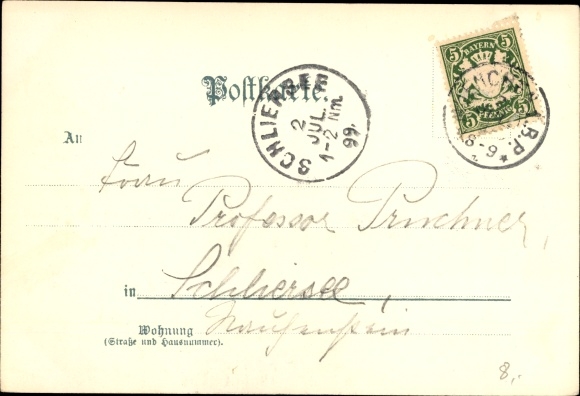 Postkarte.
BAYERN
5 5
5 5
PFENNIG
SCHLIERSEE
2
JUL.
1-2 Nm.
99.
B.P.
8-9
An
Herrn
Professor
in Schliersee,
Wohnung
(Straße und Hausnummer).
8,-